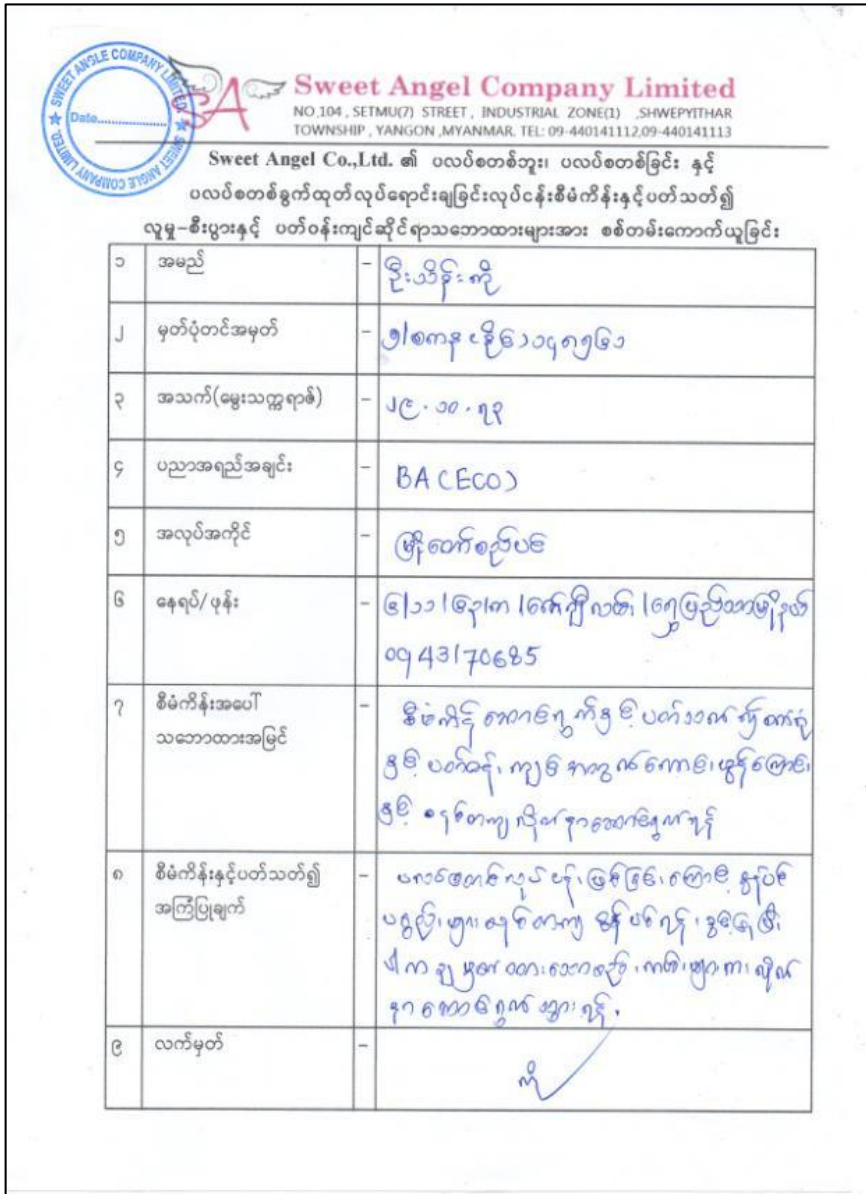 SWEET ANGLE COMPANY LIMITED
SWEET ANGLE COMPANY LIMITED.
Date....................
SA
Sweet Angel Company Limited
NO,104 , SETMU(7) STREET , INDUSTRIAL ZONE(1) ,SHWEPYITHAR
TOWNSHIP , YANGON ,MYANMAR. TEL: 09-440141112,09-440141113
Sweet Angel Co.,Ltd. ၏ ပလပ်စတစ်ဘူး၊ ပလပ်စတစ်ခြင်း နှင့်
ပလပ်စတစ်ခွက်ထုတ်လုပ်ရောင်းချခြင်းလုပ်ငန်းစီမံကိန်းနှင့်ပတ်သတ်၍
လူမှု-စီးပွားနှင့် ပတ်ဝန်းကျင်ဆိုင်ရာသဘောထားများအား စစ်တမ်းကောက်ယူခြင်း
၁ အမည် - ဦးသိန်းကို
၂ မှတ်ပုံတင်အမှတ် -
၃ အသက်(မွေးသက္ကရာဇ်) - ၂၉.၁၀.၇၃
၄ ပညာအရည်အချင်း - BA (ECO)
၅ အလုပ်အကိုင် - မြို့တော်စည်ပင်
၆ နေရပ်/ဖုန်း - ရွှေပြည်သာမြို့နယ်
0943170685
၇ စီမံကိန်းအပေါ် - စီမံကိန်း ဆောင်ရွက်
သဘောထားအမြင် နှင့် ပတ်ဝန်းကျင်
နှင့် စနစ်တကျ လိုက်နာဆောင်ရွက်ရန်
၈ စီမံကိန်းနှင့်ပတ်သတ်၍ - ပလပ်စတစ်လုပ်ငန်းဖြစ်ခြင်းကြောင့် စွန့်ပစ်
အကြံပြုချက် ပစ္စည်းများ စနစ်တကျ စွန့်ပစ်ရန်၊
လိုက်
နာဆောင်ရွက်သွားရန်
၉ လက်မှတ် - ကို